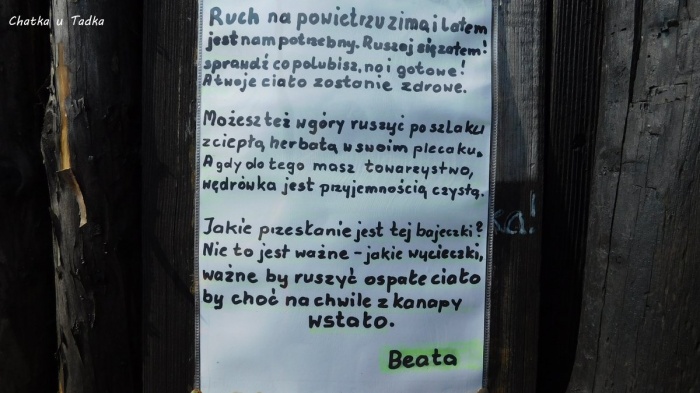 Chatka u Tadka
Ruch na powietrzu zimą i latem
jest nam potrzebny. Ruszaj się zatem!
sprawdź co polubisz, no i gotowe!
A twoje ciało zostanie zdrowe.
Możesz też w góry ruszyć po szlaku
z ciepłą herbatą w swoim plecaku.
A gdy do tego masz towarzystwo,
wędrówka jest przyjemnością czystą.
Jakie przesłanie jest tej bajeczki?
Nie to jest ważne - jakie wycieczki,
ważne by ruszyć ospałe ciało
by choć na chwile z kanapy
wstało.
Beata